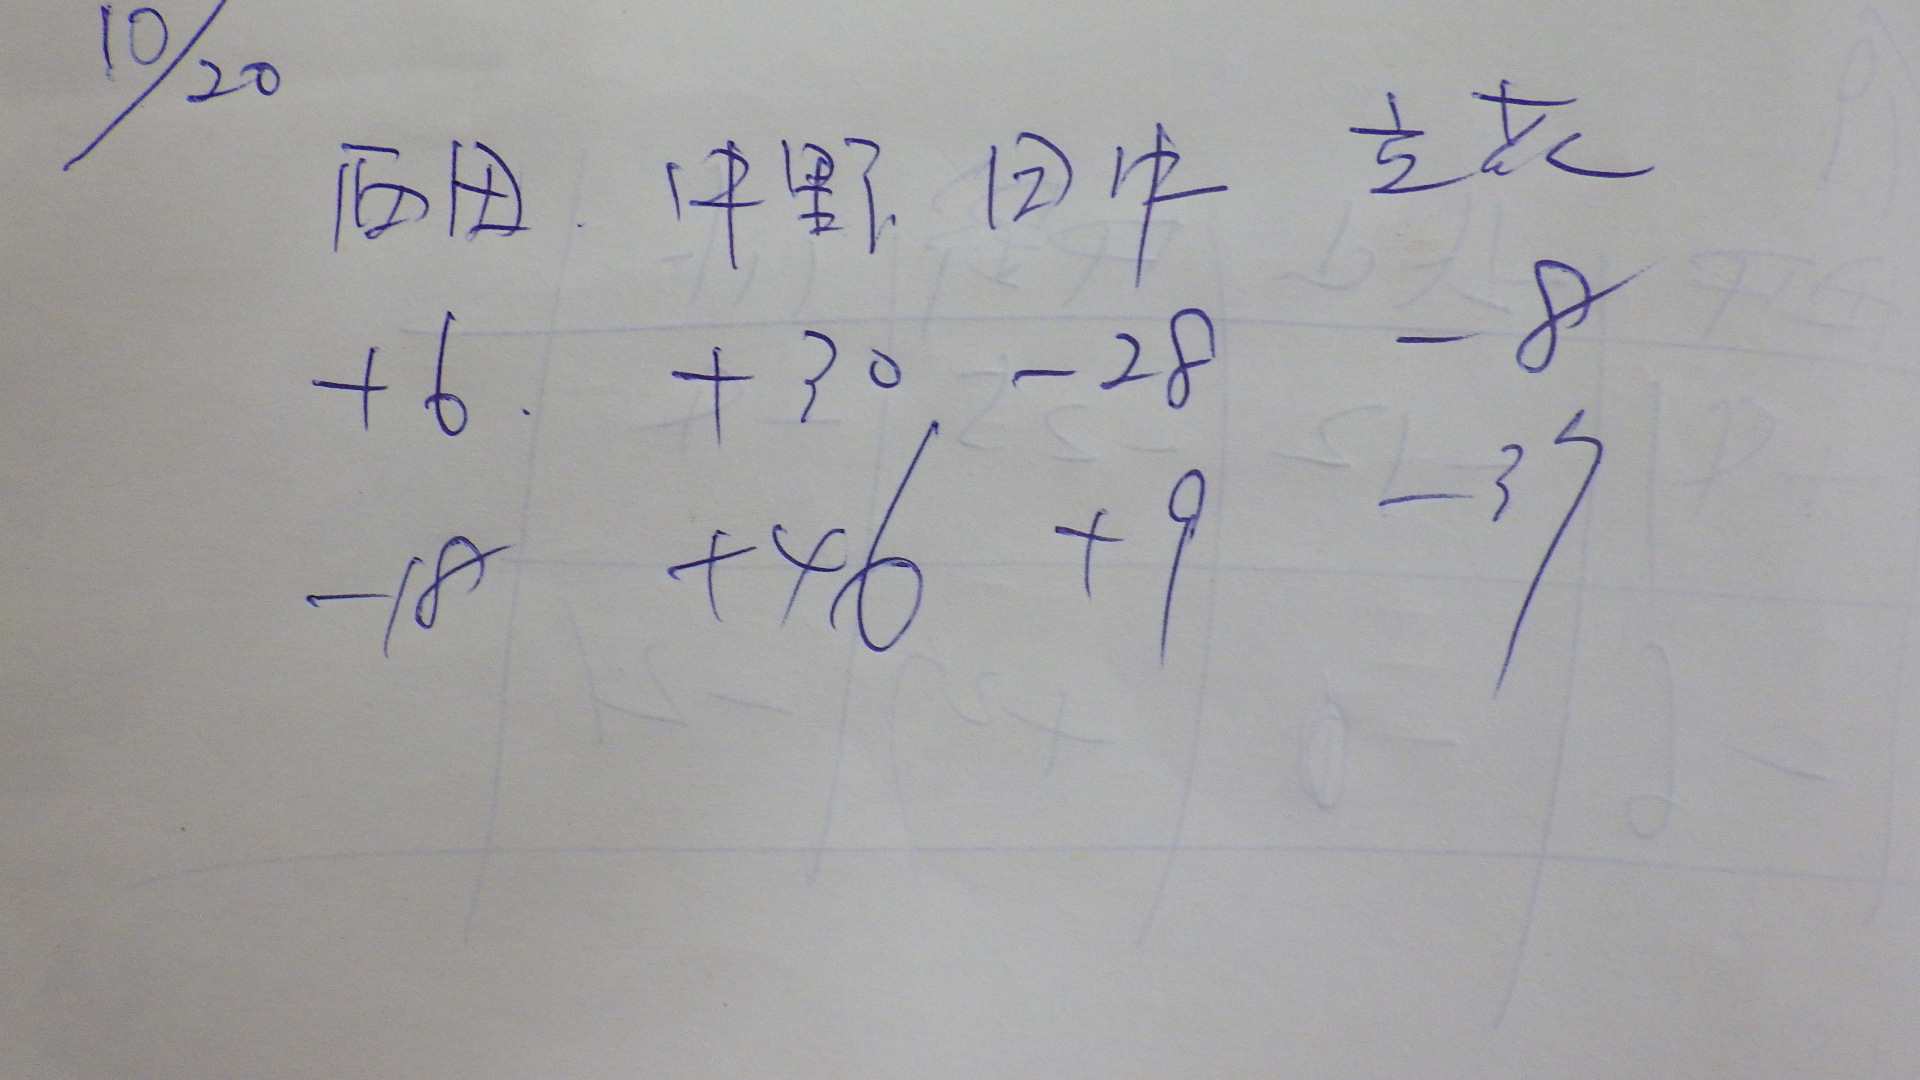 10/20
西田 仲野 田中 立花
+6 +30 -28 -8
-18 +46 +9 -37